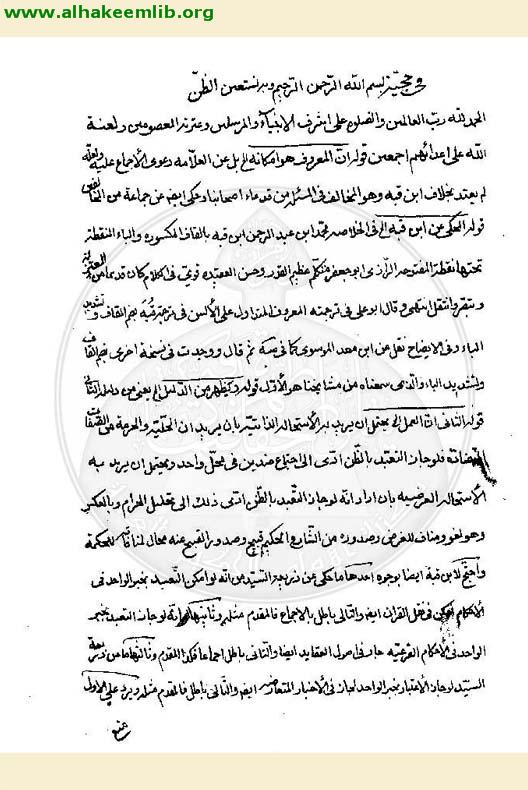 www.alhakeemlib.org
حجيّة بسم الله الرّحمن الرّحيم وبه نستعين الظنّ
الحمد لله ربّ العالمين والصّلوة على اشرف الانبياء والمرسلين وعترته المعصومين ولعنة
الله على اعدائهم اجمعين قوله انّ المعروف هو امكانه الخ بل عن العلّامة دعوى الاجماع عليه ولعلّه
لم يعتد بخلاف ابن قبه وهو المخالف في المسئلة من قدماء اصحابنا وحكى ايضا عن جماعة من العامة
قوله المحكى عن ابن قبه الخ في الخلاصة محمّد ابن عبد الرحمن ابن قبه بالقاف المكسورة والباء النقطة
تحتها نقطة المفتوحة الرّازى ابو جعفر متكلّم عظيم القدر وحسن العقيده قوىّ في الكلام كان قديما من المعتزلة
وتبصّر وانتقل انتهى وقال ابو على في ترجمته المعروف المتداول على الألسن في ترجمة قبّه بضم القاف وتشديد
الباء وفى الايضاح نقل عن ابن معد الموسوى كما في ثم قال ووجدت في نسخة اخرى بضم القاف
وتشديد الباء والّذى سمعناه من مشايخنا هو الأوّل قوله ويظهر من الدّليل الخ يعنى من دليله الثّاني
قوله الثانى انّ العمل الخ يحتمل ان يريد به الاستحالة الذّاتيّة بان يريد ان الحلّيّة والحرمة من الصّفات
المتضادّة فلو جاز التعبّد بالظّن ادّى الى اجتماع ضدين في محلّ واحد ويحتمل ان يريد به
الاستحالة العرضيه بان اراد انه لو جاز التعبّد بالظّن ادّى ذلك الى تحليل الحرام وبالعكس
وهو لغو ومناف للغرض وصدوره من الشّارع الحكيم قبيح وصدور القبيح عنه محال لمنافاته للحكمة
واحتجّ لابن قبة ايضا بوجوه احدها ما حكى عن ذريعة السّيّد من انه لو امكن التّعبد بخبر الواحد في
الأحكام لامكن في نقل القران ايضا والتالى باطل بالاجماع فالمقدم مثله وثانيها انه لو جاز التعبّد بخبر
الواحد في الأحكام الفرعيّه جاز في اصول العقايد ايضا والتّالى باطل اجماعا فكذا المقدم وثالثها ما عن ذريعة
السيّد لو جاز الأعتبار بخبر الواحد لجاز في الأخبار المتعارضه ايضا والتّالى باطل فالمقدم مثله ويرد على الأول
منع